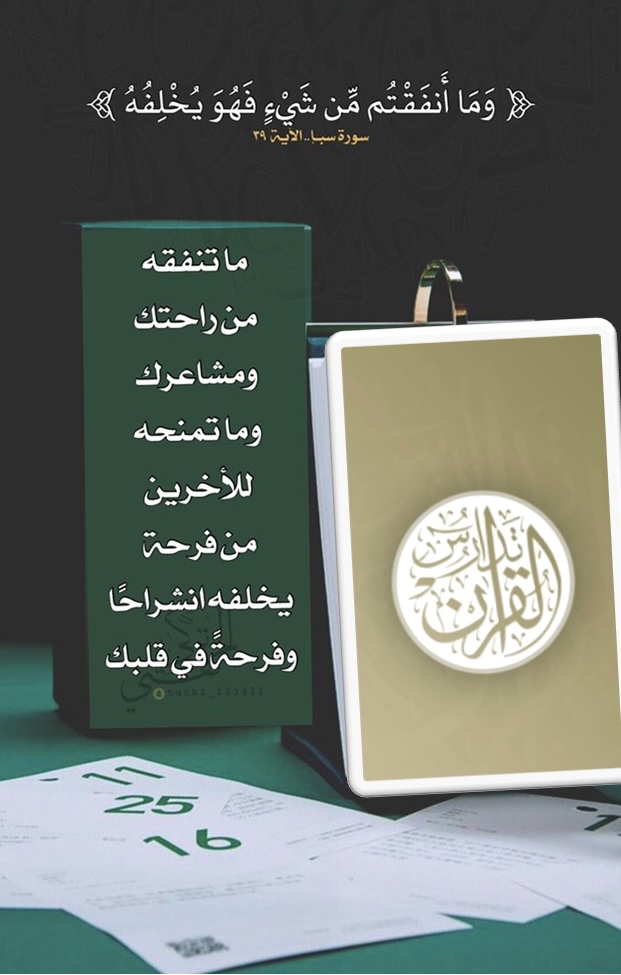 ﴿ وَمَا أَنفَقْتُم مِّن شَيْءٍ فَهُوَ يُخْلِفُهُ ﴾
سورة سبإ..الآية ٣٩
ما تنفقه
من راحتك
ومشاعرك
وما تمنحه
للأخرين
من فرحة
يخلفه انشراحًا
وفرحةً في قلبك
torki_123411
تدارس
القرآن
11
25
16